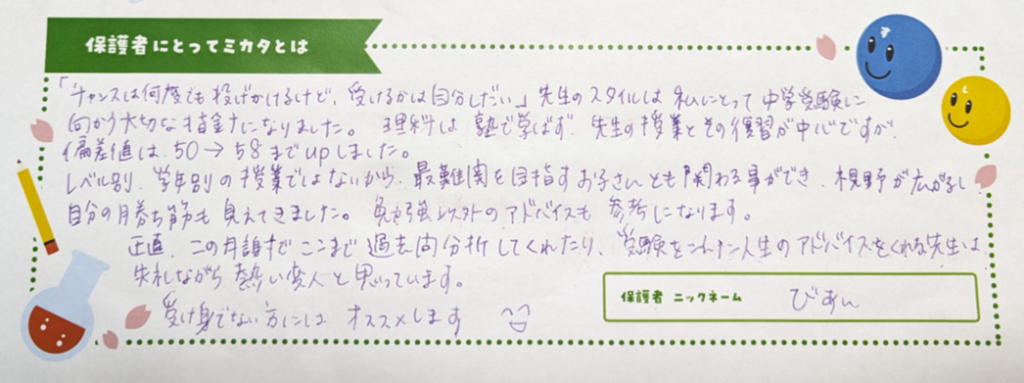 保護者にとってミカタとは
「チャンスは何度でも投げかけるけど、受けるかは自分しだい」先生のスタイルは私にとって中学受験に
向かう大切な指針になりました。理科は塾で学ばず、先生の授業とその復習が中心ですが、
偏差値は、50→58までupしました。
レベル別、学年別の授業ではないから、最難関を目指すお子さんとも関わる事ができ、視野が広がるし
自分の勝ち筋も見えてきました。勉強以外のアドバイスも参考になります。
正直、この月謝でここまで過去問分析してくれたり、受験をこえた人生のアドバイスをくれる先生は
失礼ながら熱い変人と思っています。
受け身でない方にはオススメします
保護者 ニックネーム
びあん